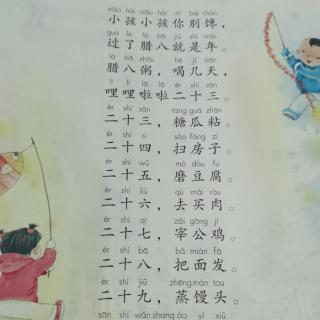 xiǎo hái xiǎo hái nǐ bié chán
小孩小孩你别馋，
guò le là bā jiù shì nián
过了腊八就是年。
là bā zhōu hē jǐ tiān
腊八粥，喝几天，
lī lī lā lā èr shí sān
哩哩啦啦二十三。
èr shí sān táng guā zhān
二十三，糖瓜粘。
èr shí sì sǎo fáng zi
二十四，扫房子。
èr shí wǔ mò dòu fu
二十五，磨豆腐。
èr shí liù qù mǎi ròu
二十六，去买肉。
èr shí qī zǎi gōng jī
二十七，宰公鸡。
èr shí bā bǎ miàn fā
二十八，把面发。
èr shí jiǔ zhēng mán tou
二十九，蒸馒头。
sān shí wǎn shang áo yì xiǔ